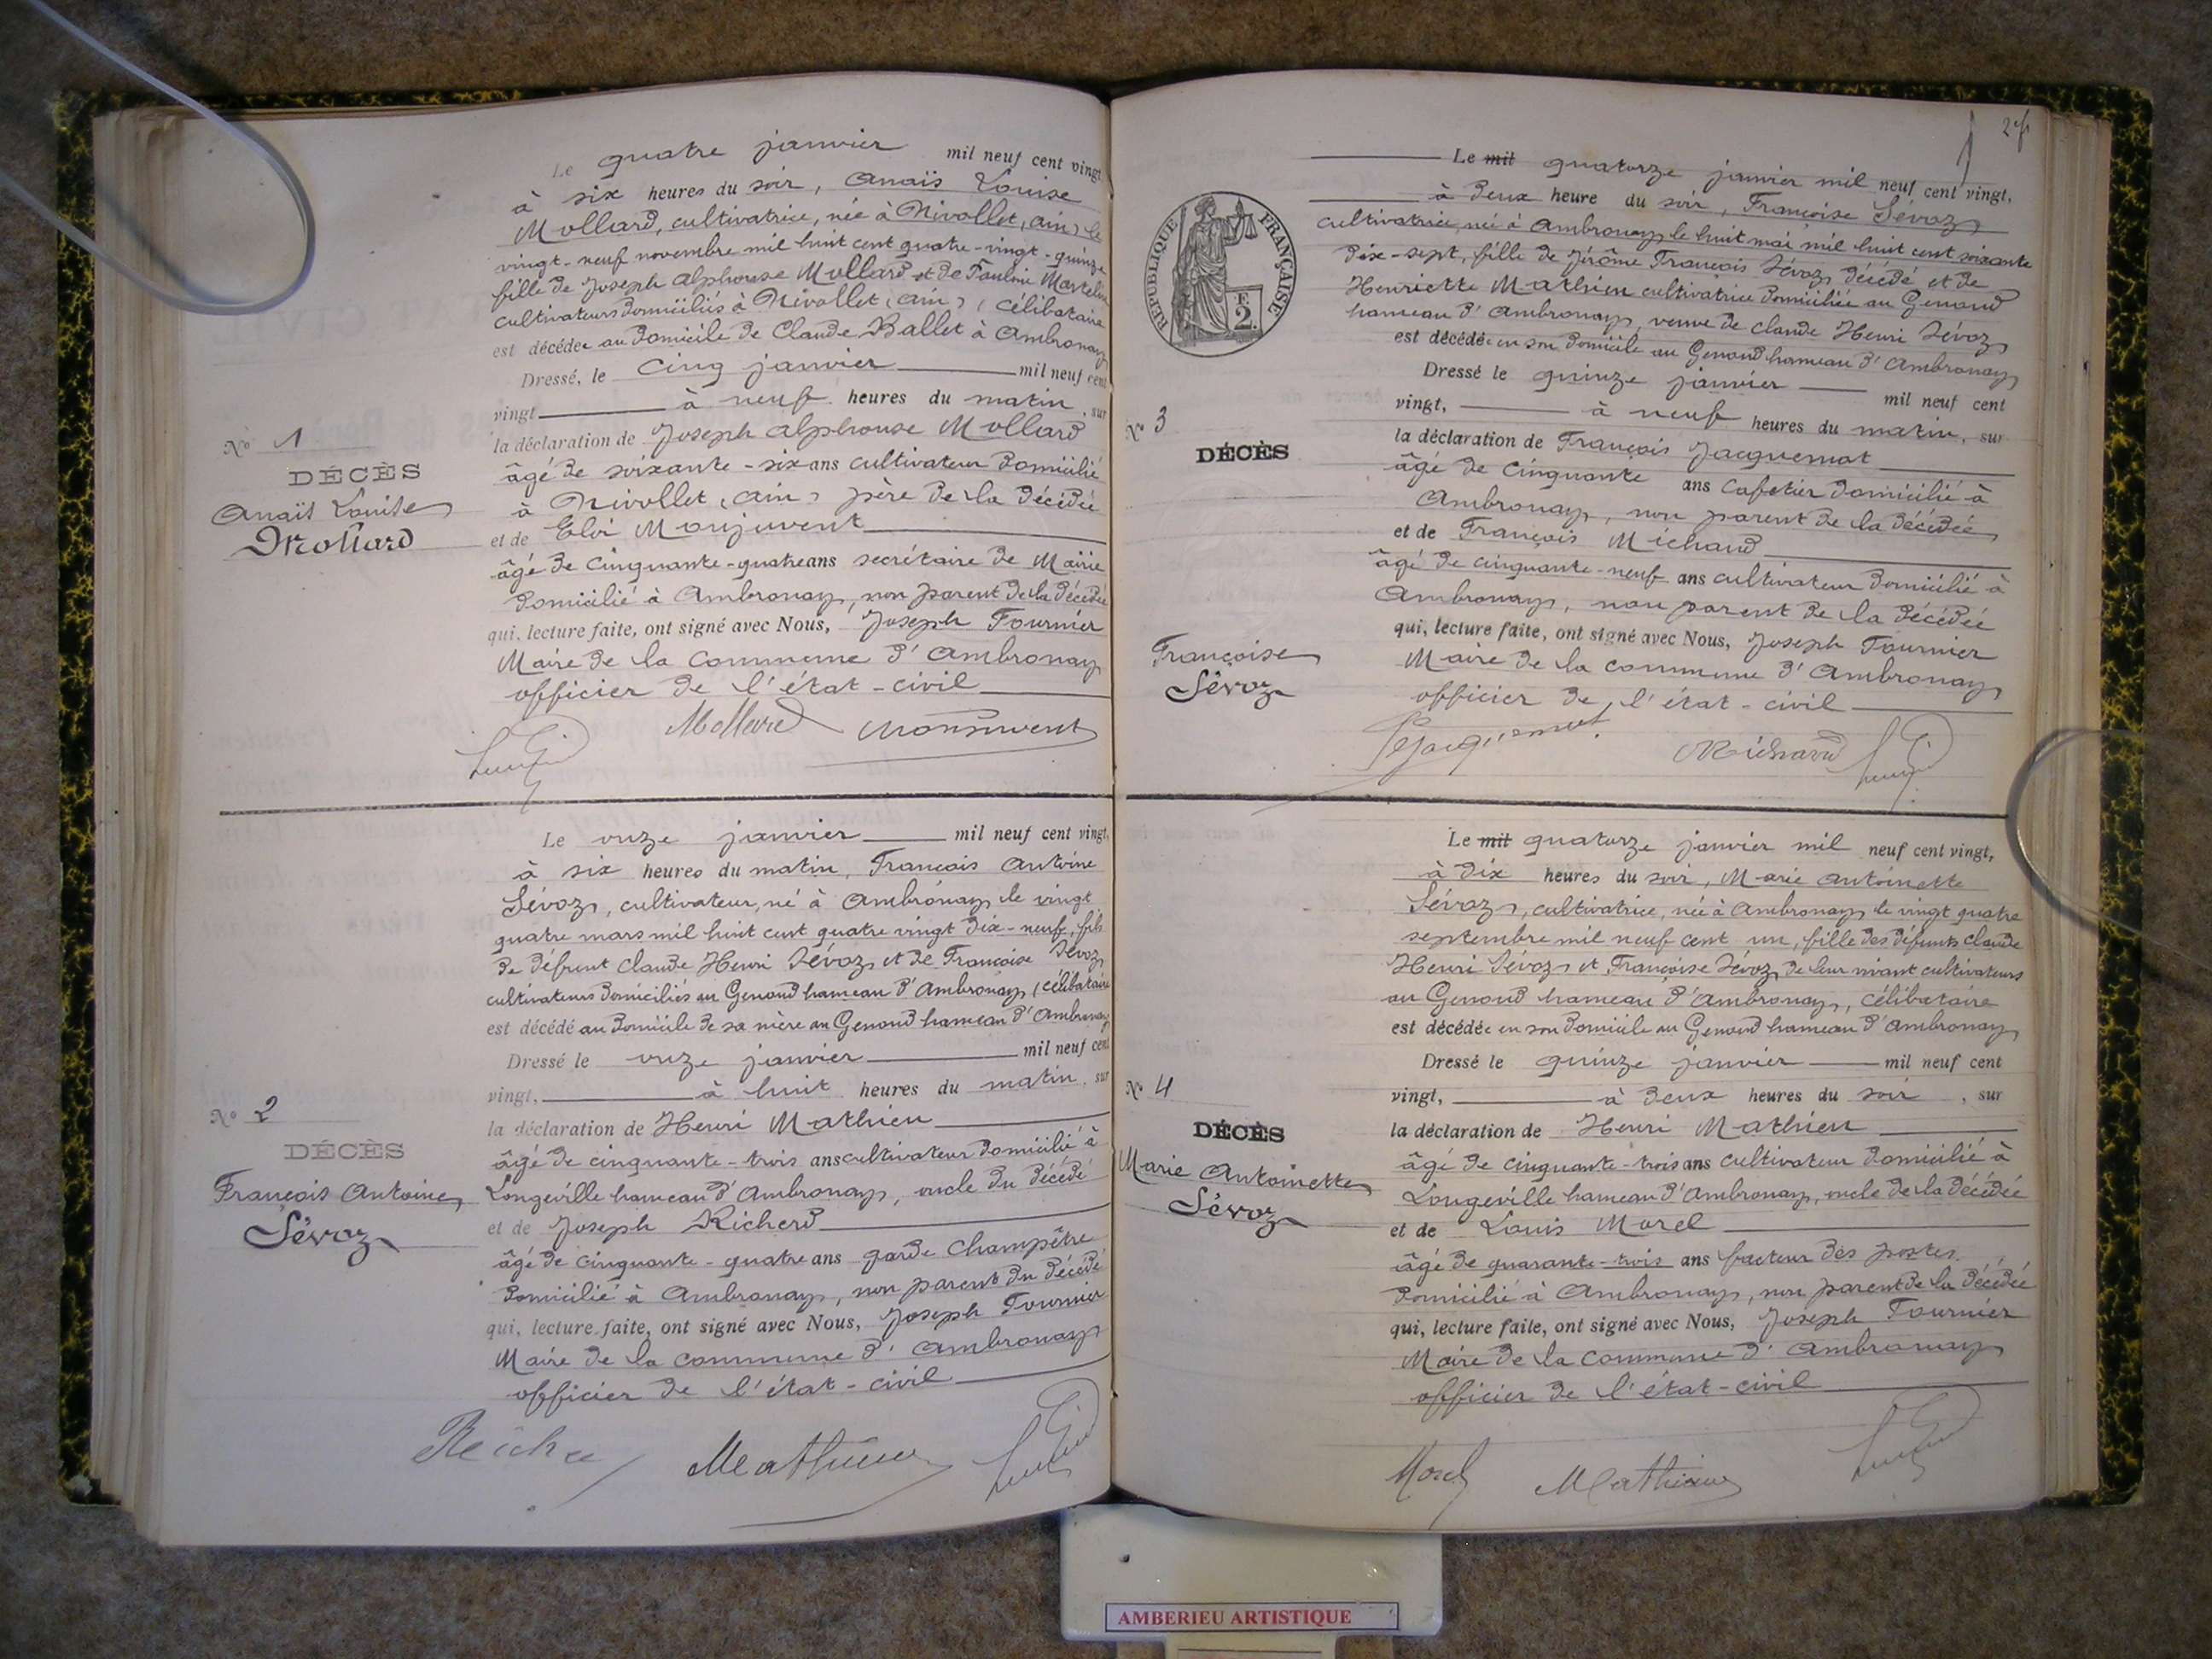 Le quatre janvier mil neuf cent vingt
à six heures du soir, Anaïs Louise
Mollard, cultivatrice, née à Nivollet, (Ain) le
vingt-neuf novembre mil huit cent quatre-vingt-quinze
fille de Joseph Alphonse Mollard et de Pauline
cultivateurs domiciliés à Nivollet (Ain) (célibataire
est décédée au domicile de Claude Ballet à Ambronay
Dressé, le cinq janvier mil neuf cent
vingt à neuf heures du matin, sur
la déclaration de Joseph Alphonse Mollard
âgé de soixante-six ans cultivateur domicilié
à Nivollet (Ain) père de la décédée
et de Eloi Monjuvent
âgé de cinquante-quatre ans secrétaire de Mairie
domicilié à Ambronay, non parent de la décédée
qui, lecture faite, ont signé avec Nous, Joseph Fournier
Maire de la commune d'Ambronay
officier de l'état-civil
Mollard Monjuvent
N° 1
DÉCÈS
Anaïs Louise
Mollard
Le onze janvier mil neuf cent vingt,
à six heures du matin, François Antoine
Sévoz, cultivateur, né à Ambronay le vingt
quatre mars mil huit cent quatre vingt dix-neuf, fils
de défunt Claude Henri Sévoz et de Françoise Sévoz
cultivateurs domiciliés au Genoud hameau d'Ambronay (célibataire
est décédé au domicile de sa mère au Genoud hameau d'Ambronay
Dressé le onze janvier mil neuf cent
vingt, à huit heures du matin, sur
la déclaration de Henri Mathieu
âgé de cinquante-trois ans cultivateur domicilié à
Longeville hameau d'Ambronay, oncle du décédé
et de Joseph Richerd
âgé de cinquante-quatre ans garde champêtre
domicilié à Ambronay, non parent du décédé
qui, lecture faite, ont signé avec Nous, Joseph Fournier
Maire de la commune d'Ambronay
officier de l'état-civil
Mathieu
N° 2
DÉCÈS
François Antoine
Sévoz
Le mil quatorze janvier mil neuf cent vingt,
à deux heure du soir, Françoise Sévoz
cultivatrice, née à Ambronay le huit mai mil huit cent soixante
dix-sept, fille de Jérôme François Sévoz décédé et de
Henriette Mathieu cultivatrice domiciliée au Genoud
hameau d'Ambronay, veuve de Claude Henri Sévoz
est décédée en son domicile au Genoud hameau d'Ambronay
Dressé le quinze janvier mil neuf cent
vingt, à neuf heures du matin, sur
la déclaration de François Jacquemot
âgé de cinquante ans cafetier domicilié à
Ambronay, non parent de la décédée
et de François Michaud
âgé de cinquante-neuf ans cultivateur domicilié à
Ambronay, non parent de la décédée
qui, lecture faite, ont signé avec Nous, Joseph Fournier
Maire de la commune d'Ambronay
officier de l'état-civil
Michaud
RÉPUBLIQUE FRANÇAISE
F.
2.
N° 3
DÉCÈS
Françoise
Sévoz
Le mil quatorze janvier mil neuf cent vingt,
à dix heures du soir, Marie Antoinette
Sévoz, cultivatrice, née à Ambronay le vingt quatre
septembre mil neuf cent un, fille des défunts Claude
Henri Sévoz et Françoise Sévoz de leur vivant cultivateurs
au Genoud hameau d'Ambronay, célibataire
est décédée en son domicile au Genoud hameau d'Ambronay
Dressé le quinze janvier mil neuf cent
vingt, à deux heures du soir, sur
la déclaration de Henri Mathieu
âgé de cinquante-trois ans cultivateur domicilié à
Longeville hameau d'Ambronay, oncle de la décédée
et de Louis Morel
âgé de quarante-trois ans facteur des postes
domicilié à Ambronay, non parent de la décédée
qui, lecture faite, ont signé avec Nous, Joseph Fournier
Maire de la commune d'Ambronay
officier de l'état-civil
Morel Mathieu
N° 4
DÉCÈS
Marie Antoinette
Sévoz
AMBERIEU ARTISTIQUE